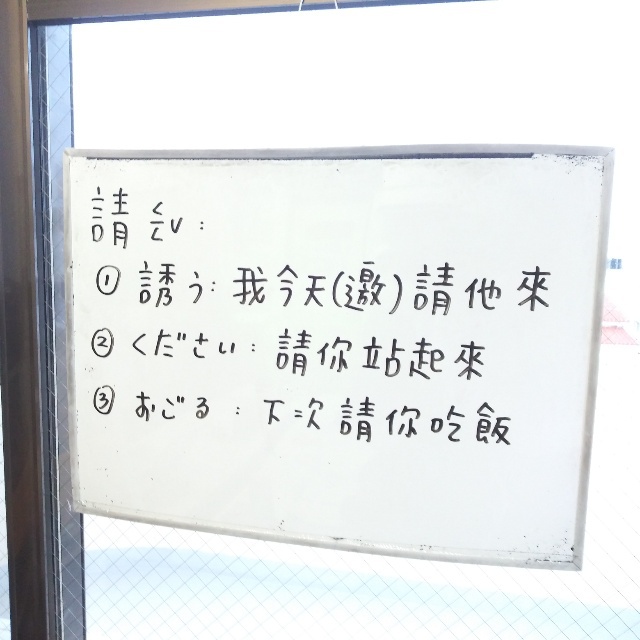 請 ㄑㄧㄥˇ:
① 誘う: 我今天(邀)請他來
② ください: 請你站起來
③ おごる: 下次請你吃飯